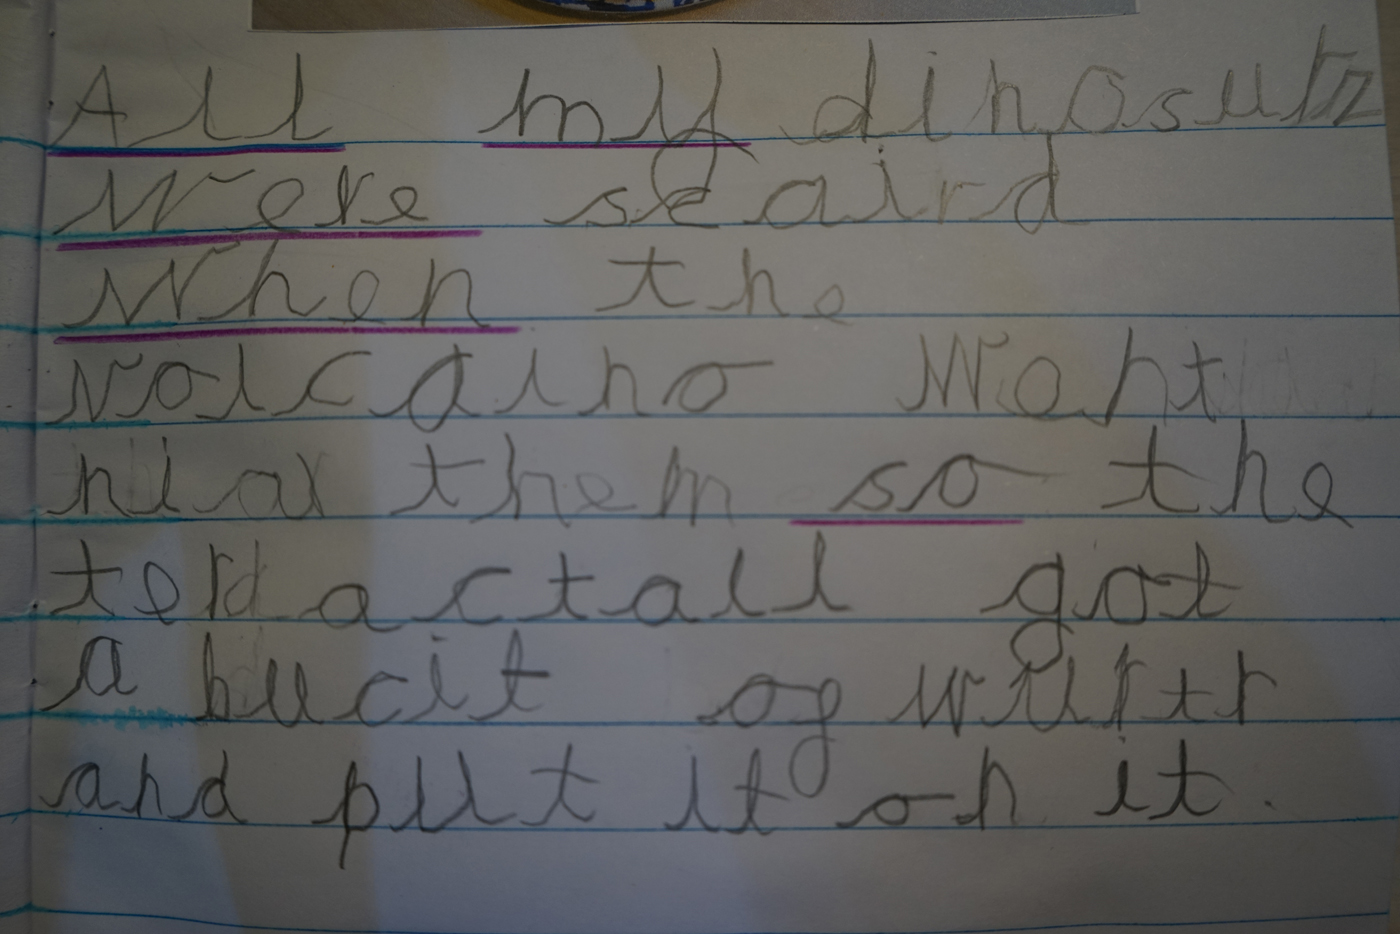 All my dinosurs
were scaird
when the
volcaino went
niar them so the
terdactall got
a bucit of wurtr
and put it on it.